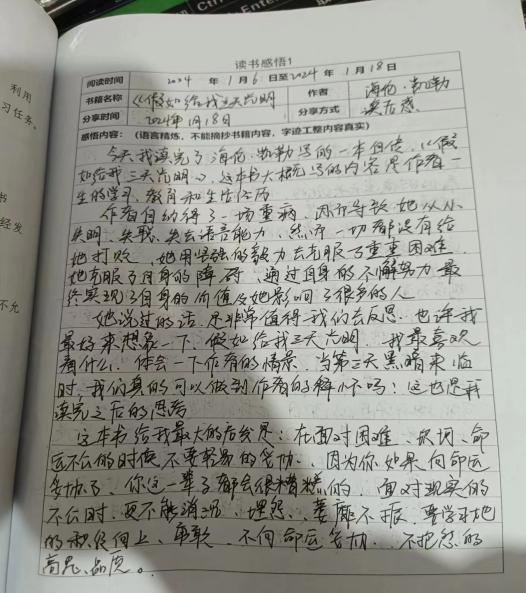 利用
习任务。
书
经发
不允
读书感悟1
阅读时间 2024 年 1 月 6 日至2024 年 1 月 18 日
书籍名称 《假如给我三天光明 作者 海伦·凯勒
分享时间 2024年1月18日 分享方式 读后感
感悟内容：（语言精炼，不能摘抄书籍内容，字迹工整内容真实）
今天我读完了海伦.凯勒写的一本自传，《假
如给我三天光明》，这本书大概写的内容是作者一
生的学习、教育和生活经历
作者自幼得了一场重病，因而导致她从小
失明、失聪、失去语言能力，然而一切都没有给
她打败，她用坚强的毅力去克服了重重困难，
她克服了自身的障碍，通过自身的不懈努力最
终实现了自身的价值及她影响了很多的人
她说过的话，是非常值得我们去反思，也许我
最好来想象一下，假如给我三天光明，我最喜欢
看什么，体会一下作者的情景，当第三天黑暗来临
时，我们真的可以做到作者的释怀吗？这也是我
读完之后的感悟
这本书给我最大的启发是：在面对困难、命
运不公的时候不要轻易的妥协，因为你如果向命运
妥协了，你这一辈子都会很糟糕的，面对现实的
不公时，更不能消沉、埋怨、萎靡不振，要学习她
的积极向上、不向命运妥协、不抱怨的
高尚品质。